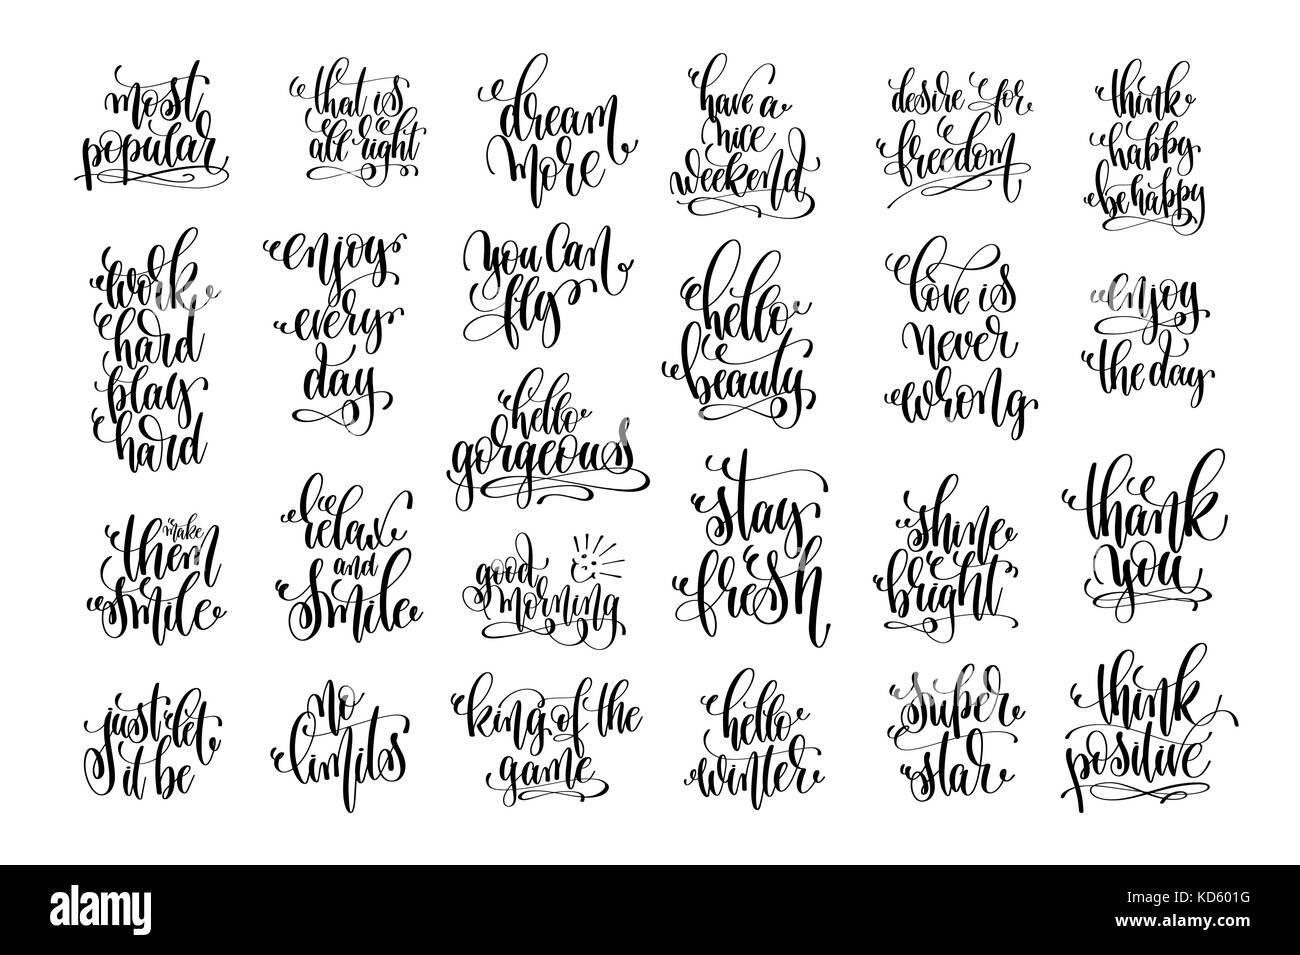 most
popular
that is
all right
dream
more
have a
nice
weekend
desire for
freedom
think
happy
be happy
work
hard
play
hard
enjoy
every
day
you can
fly
hello
beauty
love is
never
wrong
enjoy
the day
hello
gorgeous
make
them
smile
relax
and
smile
good
morning
stay
fresh
shine
bright
thank
you
just let
it be
no
limits
king of the
game
hello
winter
super
star
think
positive
alamy
Image ID: KD601G
www.alamy.com